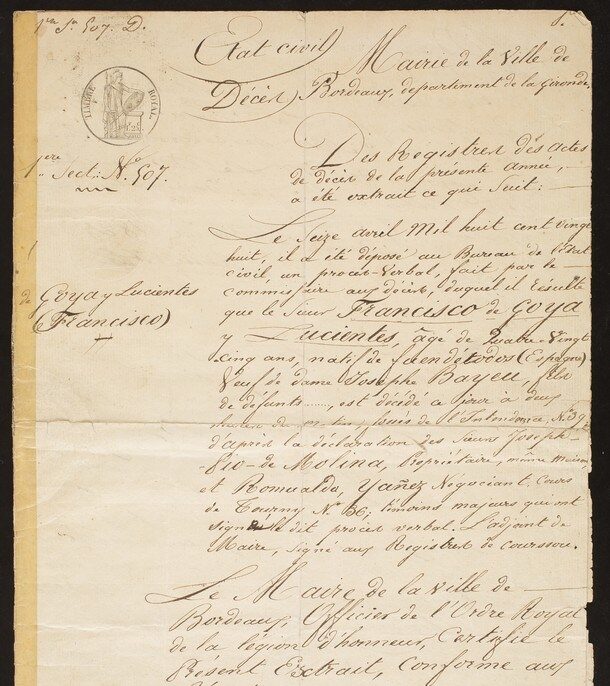 1re Son 507. D.
Etat civil
Décès
TIMBRE ROYAL
Mairie de la Ville de
Bordeaux, département de la Gironde.
1ere Sect: No 507.
Des Registres des actes
de décès de la présente année,
a été extrait ce qui suit:
Le Seize avril Mil huit cent vingt
huit, il a été déposé au Bureau de l'Etat
civil un procès-Verbal, fait par le
commissaire aux décès, duquel il résulte
de Goya y Lucientes
(Francisco)
que le Sieur Francisco de Goya
y Lucientes, âgé de Quatre-Vingt
Cinq ans, natif de faendetodos (Espagne)
Veuf de dame Josephe Bayeu, fils
de défunts ......, est décédé ce jour à deux
heures du matin, fossés de l'Intendance, No 39,
d'après la déclaration des Sieurs Joseph
Pio de Molina, Propriétaire, même maison,
et Romualdo Yañez Négociant, Cours
de Tourny No 56; témoins majeurs qui ont
signé le dit procès verbal. L'adjoint de
Maire, signé aux Registres de Coursson.
Le Maire de la Ville de
Bordeaux, Officier de l'Ordre Royal
de la légion d'honneur, Certifie le
Présent Extrait, Conforme aux